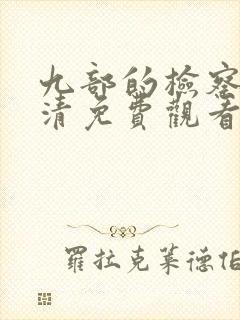 九部的檢察
清免費觀看
羅拉克萊德伯